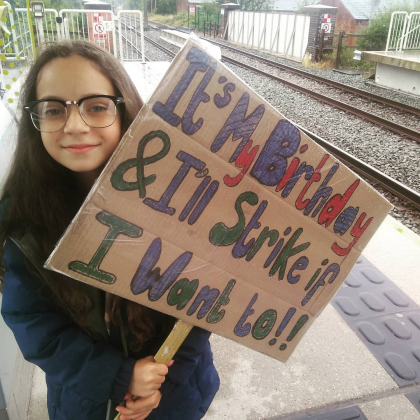 It's My Birthday
& I'll Strike if
I Want to!!